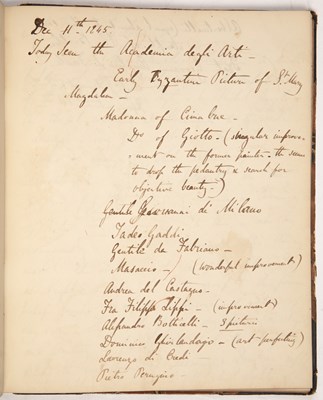 Dec 11th 1845.
Today seen the Academia degli Arti -
Early Byzantine Picture of St Mary
Magdalen -
Madonna of Cimabue -
Do of Giotto - (singular improve
- ment on the former painter - the seems
to drop the pedantry & search for
objective beauty -)
Gentile di Milano
Tadeo Gaddi
Gentile da Fabriano -
Masaccio - (wonderful improvement)
Andrea del Castagno -
Fra Filippo Lippi - (improvement)
Alessandro Botticelli - 3 pictures
Dominico Ghirlandagio - (art - perfecting)
Lorenzo di Credi
Pietro Perugino -